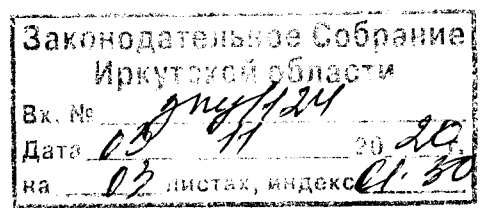 Законодательное Собрание
Иркутской области
Вх. №
Дата 03 11 2020 г.
на 03 листах, индекс 01.30